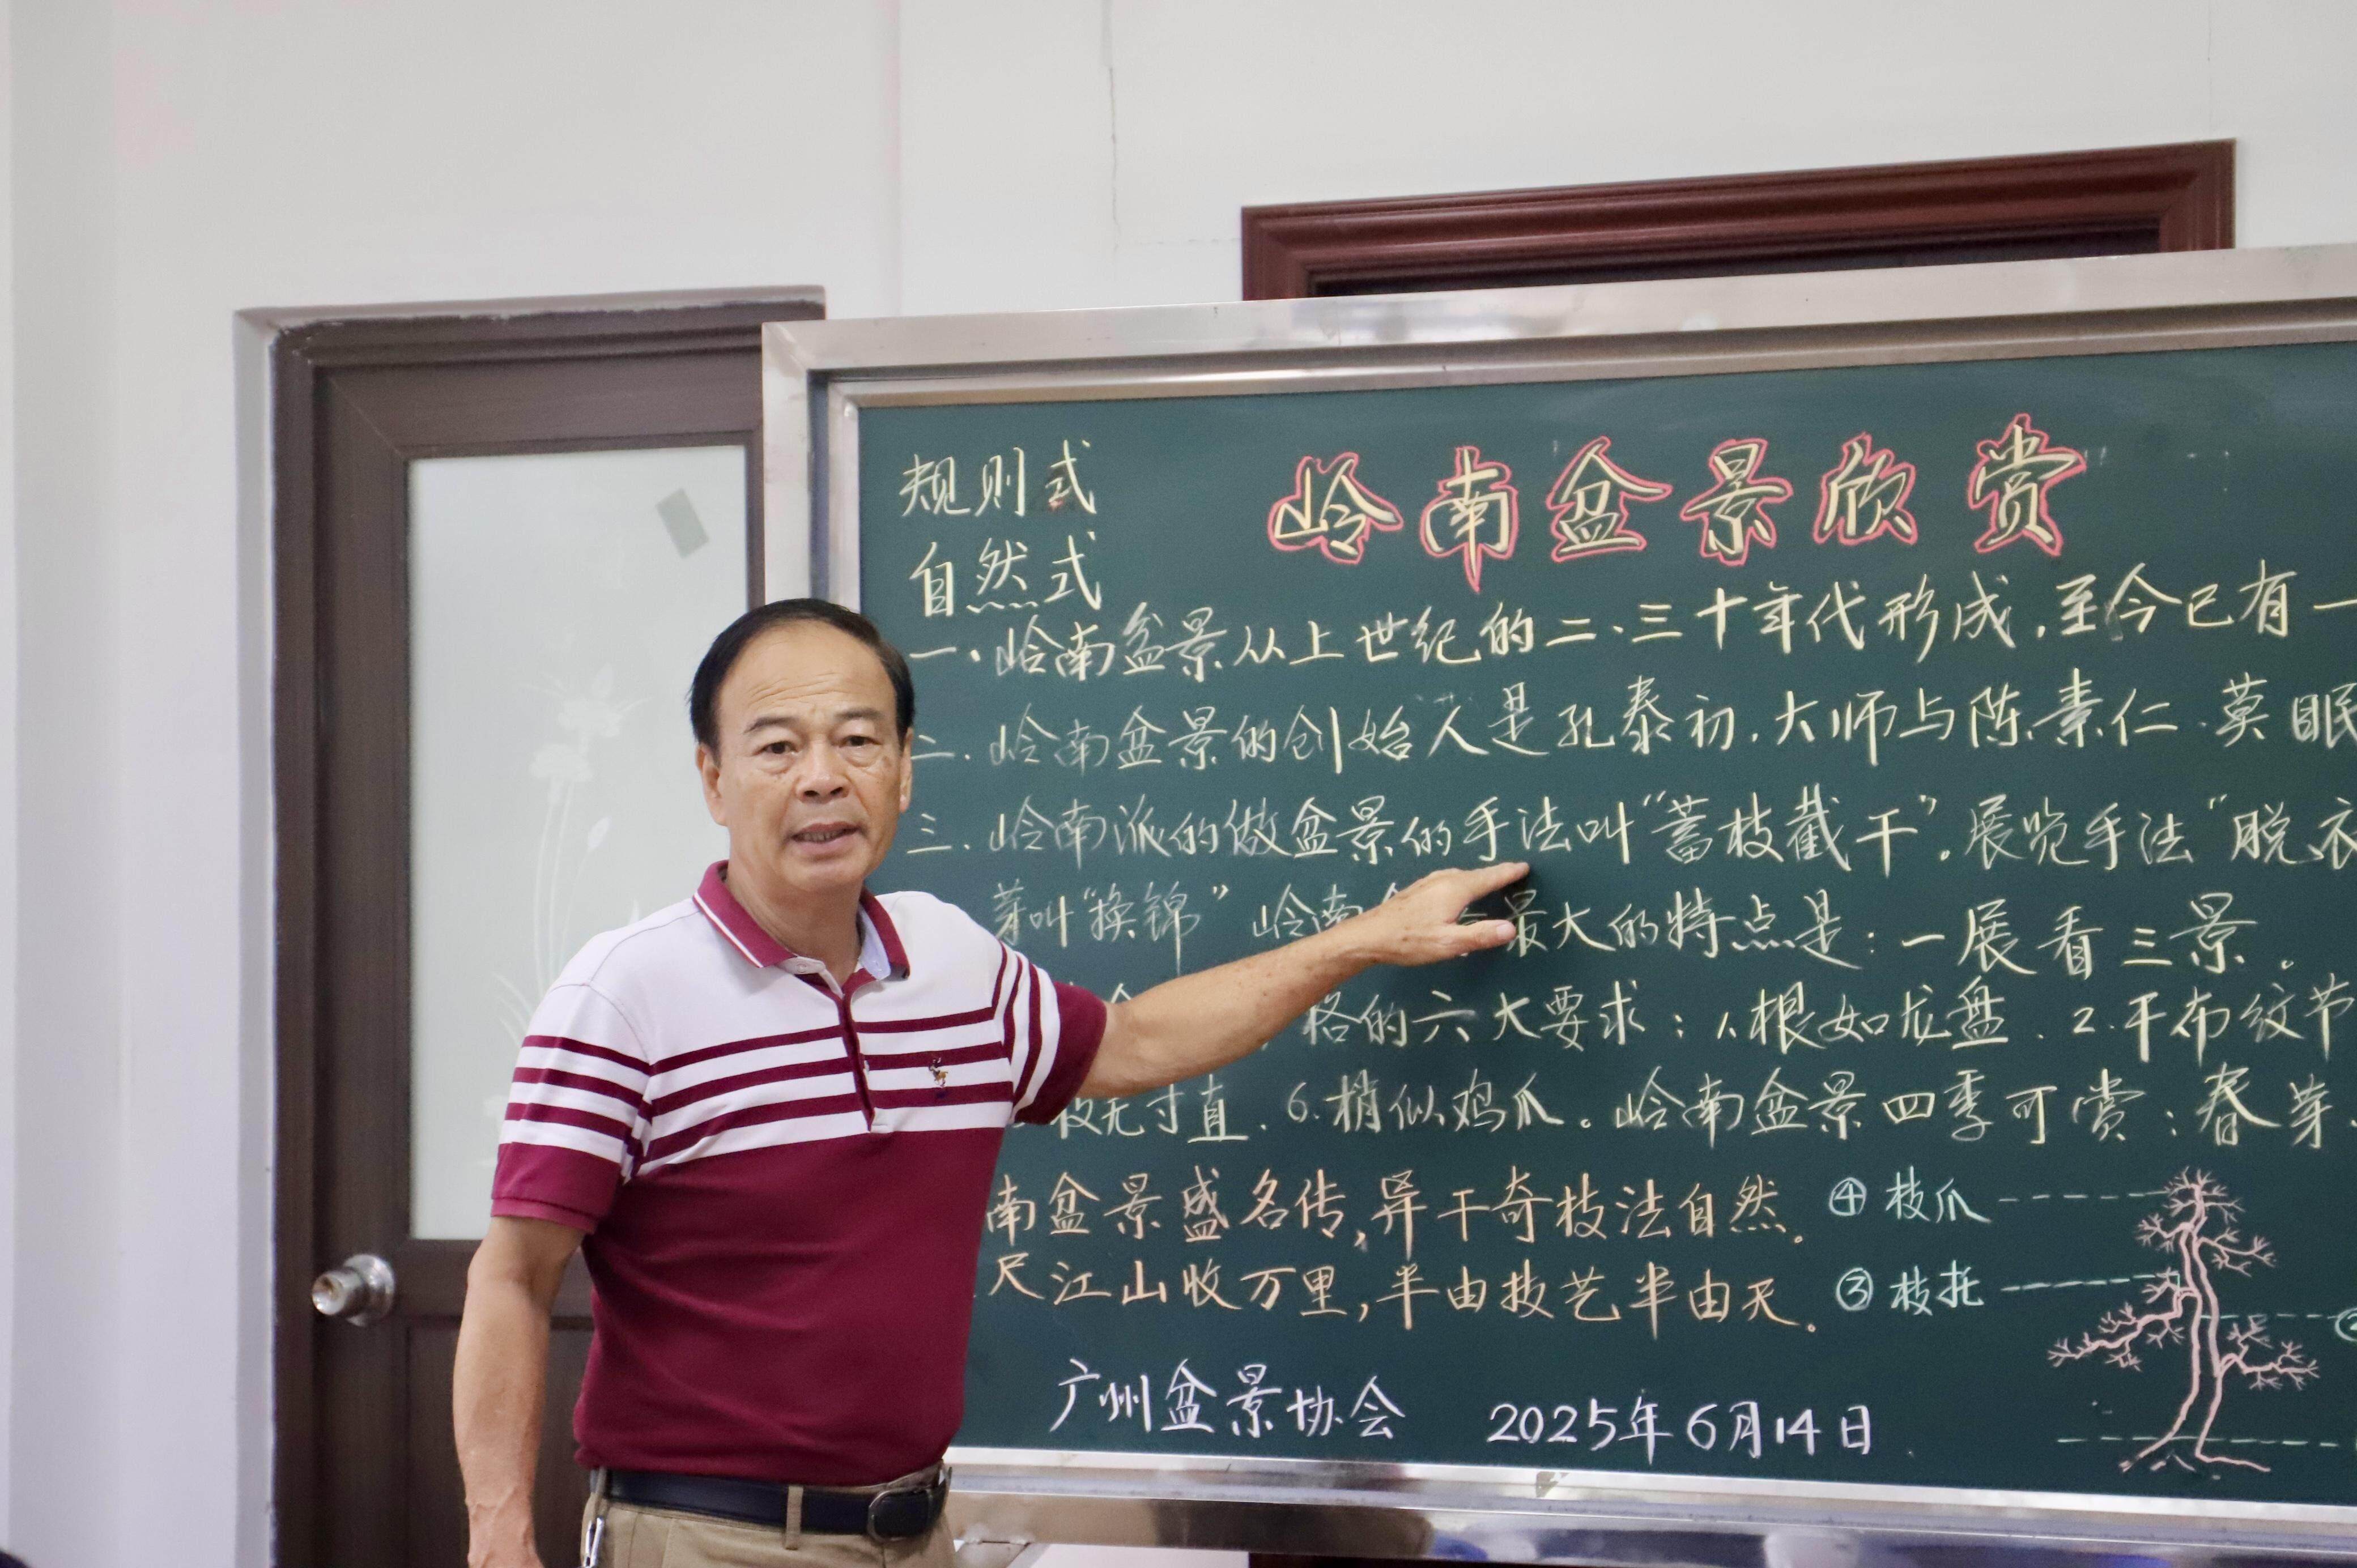 规则式
岭南盆景欣赏
自然式
一、岭南盆景从上世纪的二、三十年代形成,至今已有一
二.岭南盆景的创始人是孔泰初.大师与陈素仁.莫眠
三.岭南派的做盆景的手法叫“蓄枝截干”。展览手法“脱衣
芽叫“换锦”岭南 最大的特点是:一展看三景。
格的六大要求:1.根如龙盘.2.干布纹节
枝无寸直.6.梢似鸡爪。岭南盆景四季可赏:春芽.
南盆景盛名传,异干奇枝法自然。
尺江山收万里,半由技艺半由天。
④枝爪
③枝托
广州盆景协会 2025年6月14日